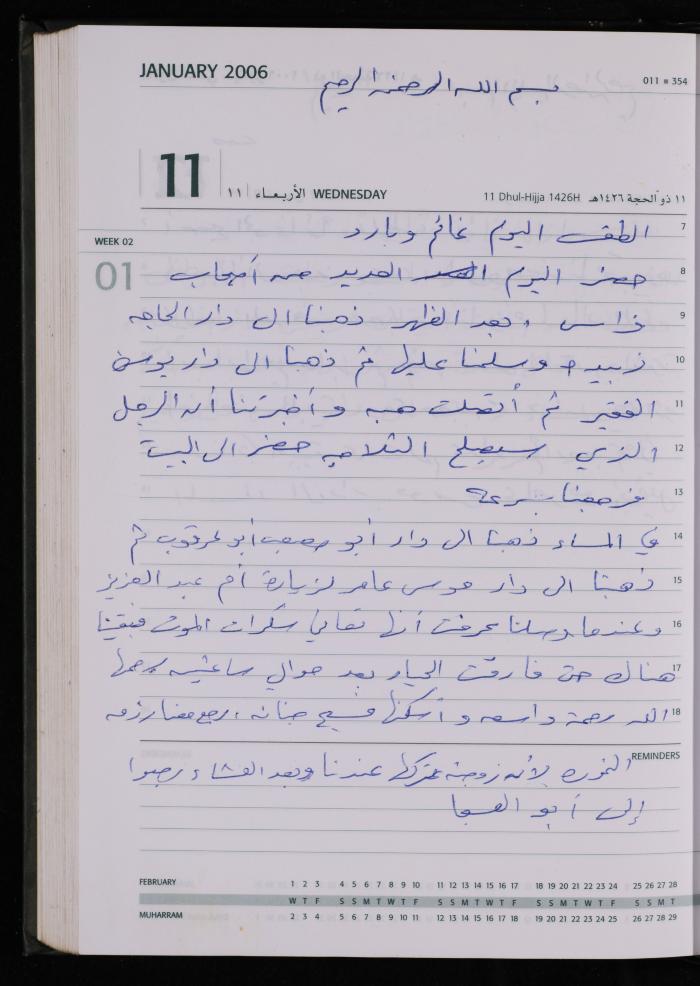 JANUARY 2006
011 ■ 354
بسم الله الرحمن الرحيم
11 ١١ الأربعاء WEDNESDAY 11 Dhul-Hijja 1426H ١١ ذو الحجة ١٤٢٦هـ
WEEK 02
01
7 الطقس اليوم غائم وبارد
8 حضر اليوم العديد من أصحاب
9 فراس وبعد الظهر ذهبنا الى دار الحاجه
10 زبيدة وسلمنا عليها ثم ذهبنا الى دار يوسف
11 الفقير ثم أتصلت هبه وأخبرتنا أن الرجل
12 الذي سيصلح الثلاجه حضر الى البيت
13 فرجعنا بسرعة
14 في المساء ذهبنا الى دار أبو مصعب أبو عرقوب ثم
15 ذهبنا الى دار موسى عامر لزيارة أم عبد العزيز
16 وعندما وصلنا عرفت أنها تعاني سكرات الموت فبقينا
17 هناك حتى فارقت الحياه بعد حوالي ساعتين رحمها
18 الله رحمة واسعه وأسكنها فسيح جنانه، رجع معنا رزق
REMINDERS
لأنه زوجته تركها عندنا وبعد العشاء رجعوا
إلى أبو العسجا
FEBRUARY 1 2 3 4 5 6 7 8 9 10 11 12 13 14 15 16 17 18 19 20 21 22 23 24 25 26 27 28
W T F S S M T W T F S S M T W T F S S M T W T F S S M T
MUHARRAM 2 3 4 5 6 7 8 9 10 11 12 13 14 15 16 17 18 19 20 21 22 23 24 25 26 27 28 29